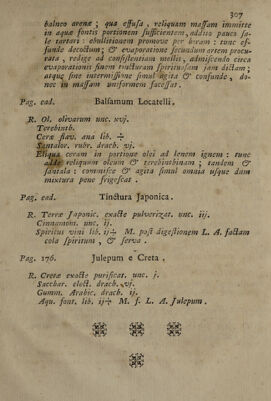 307
balneo arenæ ; qua effusa , reliquam massam immitte
in aquæ fontis portionem sufficientem, addito pauco sa-
le tartari : ebullitionem promove per horam : tunc ef-
funde decoctum; & evaporatione secundum artem procu-
rata , redige ad consistentiam mellis, admiscendo circa
evaporationis finem tincturam spirituosam jam dictam;
atque sine intermissione simul agita & confunde , do-
nec in massam uniformem facessat.
Pag. ead. Balsamum Locatelli.
R. Ol. olivarum unc. xvj.
Terebinth.
Ceræ flav. ana lib. ÷
Santalor. rubr. drach. vj.
Eliqua ceram in portione olei ad lenem ignem : tunc
adde reliquum oleum & terebinthinam ; tandem &
santala : commisce & agita simul omnia usque dum
mixtura pene frigescat .
Pag. ead. Tinctura Japonica.
R. Terræ Japonic. exacte pulverizat. unc. iij.
Cinnamom. unc. ij.
Spiritus vini lib. ij÷ M. post digestionem L. A. factam
cola spiritum , & serva .
Pag. 176. Julepum e Creta .
R. Cretæ exacte purificat. unc. j.
Sacchar. elect. drach. vj.
Gumm. Arabic. drach. ij.
Aqu. font. lib. ij÷ M. f. L. A. Julepum .